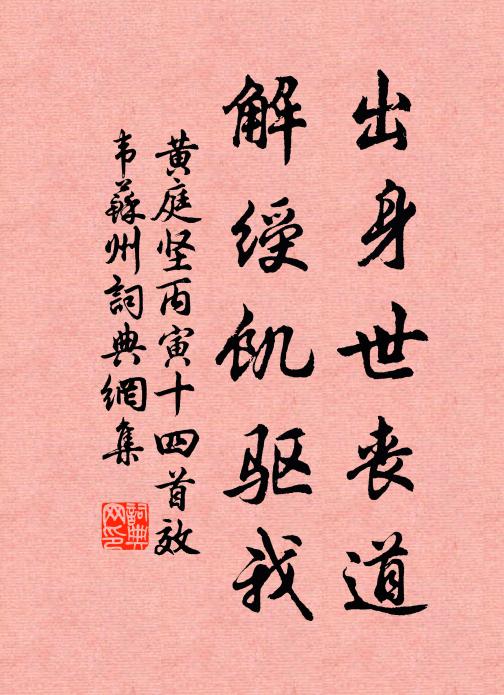 出身世丧道
解绶饥驱我
黄庭坚丙寅十四首效
韦苏州詞典網集
詞典網印